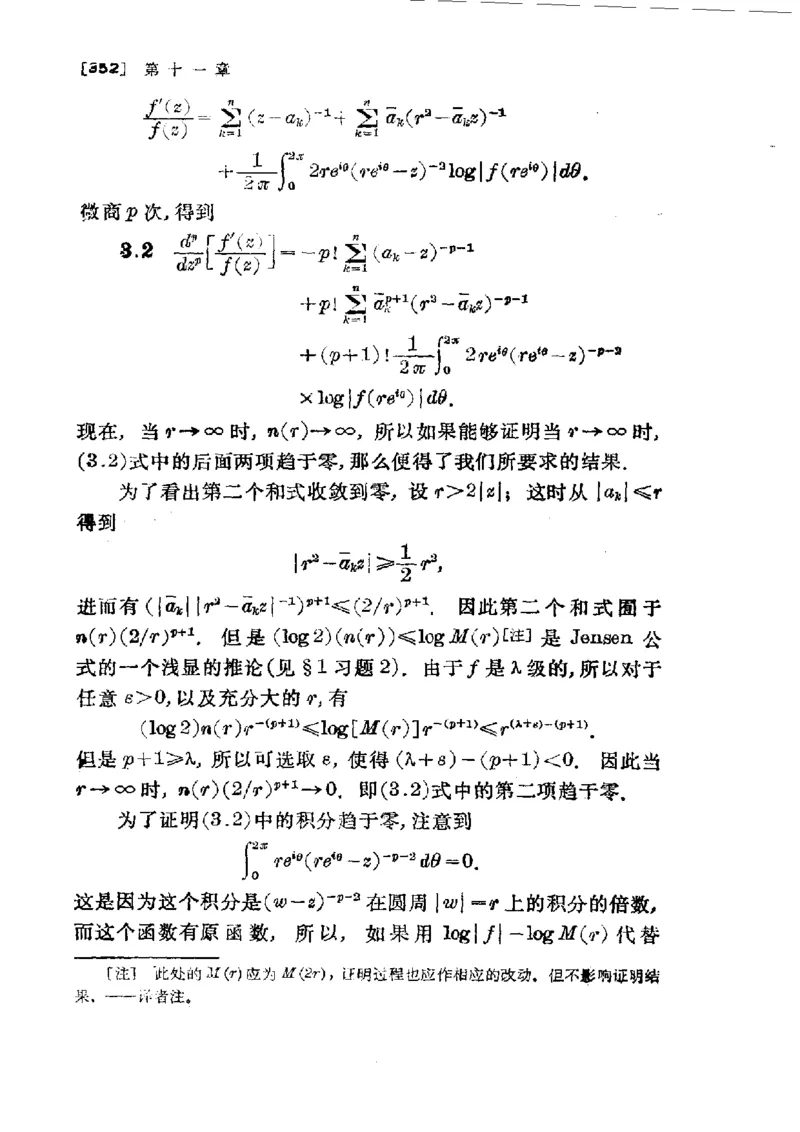 [352] 第十一章
f'(z)/f(z) = ∑_{k=1}^{n} (z-a_k)^{-1} + ∑_{k=1}^{n} ā_k(r²-ā_kz)^{-1}
+ 1/2π ∫_0^{2π} 2re^{iθ}(re^{iθ}-z)^{-2} log|f(re^{iθ})|dθ.
微商p次,得到
3.2 d^p/dz^p [f'(z)/f(z)] = -p! ∑_{k=1}^{n} (a_k-z)^{-p-1}
+p! ∑_{k=1}^{n} ā_k^{p+1}(r²-ā_kz)^{-p-1}
+(p+1)! 1/2π ∫_0^{2π} 2re^{iθ}(re^{iθ}-z)^{-p-2}
×log|f(re^{iθ})|dθ.
现在, 当 r→∞ 时, n(r)→∞, 所以如果能够证明当 r→∞ 时,
(3.2)式中的后面两项趋于零,那么便得了我们所要求的结果.
为了看出第二个和式收敛到零, 设 r>2|z|; 这时从 |a_k|≤r
得到
|r²-ā_kz|≥1/2 r²,
进而有 (|ā_k||r²-ā_kz|^{-1})^{p+1}≤(2/r)^{p+1}. 因此第二个和式圄于
n(r)(2/r)^{p+1}. 但是 (log2)(n(r))≤logM(r)[注] 是 Jensen 公
式的一个浅显的推论(见 §1 习题 2). 由于 f 是 λ 级的,所以对于
任意 ε>0,以及充分大的 r, 有
(log2)n(r)r^{-(p+1)}≤log[M(r)]r^{-(p+1)}≤r^{(λ+ε)-(p+1)}.
但是 p+1≥λ, 所以可选取 ε, 使得 (λ+ε)-(p+1)<0. 因此当
r→∞ 时, n(r)(2/r)^{p+1}→0. 即(3.2)式中的第二项趋于零.
为了证明(3.2)中的积分趋于零,注意到
∫_0^{2π} re^{iθ}(re^{iθ}-z)^{-p-2}dθ=0.
这是因为这个积分是(w-z)^{-p-2}在圆周 |w|=r 上的积分的倍数,
而这个函数有原函数, 所以, 如果用 log|f|-logM(r) 代替
[注] 此处的 M(r)应为 M(2r), 证明过程也应作相应的改动. 但不影响证明结
果. ——译者注.